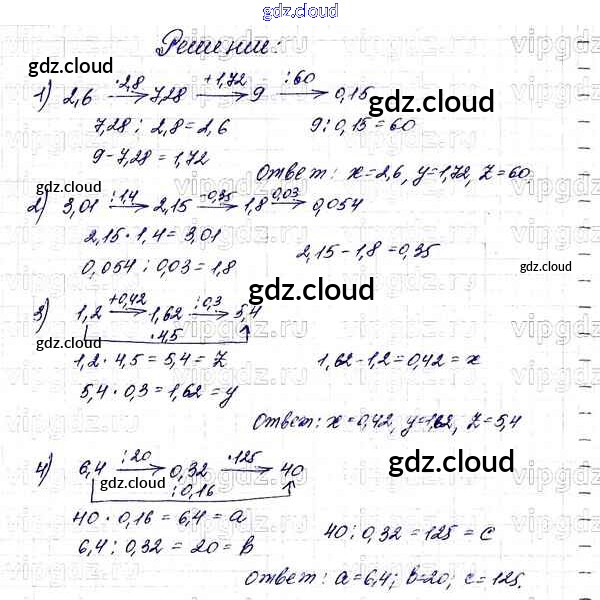 gdz.cloud
Решение:
1) 2,6 —·2,8→ 7,28 —+1,72→ 9 —:60→ 0,15
7,28 : 2,8 = 2,6
9 : 0,15 = 60
9 - 7,28 = 1,72
Ответ: x = 2,6, y = 1,72, z = 60
2) 3,01 —:1,4→ 2,15 —-0,35→ 1,8 —·0,03→ 0,054
2,15 · 1,4 = 3,01
2,15 - 1,8 = 0,35
0,054 : 0,03 = 1,8
3) 1,2 —+0,42→ 1,62 —:0,3→ 5,4
·4,5
1,2 · 4,5 = 5,4 = z
1,62 - 1,2 = 0,42 = x
5,4 · 0,3 = 1,62 = y
Ответ: x = 0,42, y = 1,62, z = 5,4
4) 6,4 —:20→ 0,32 —·125→ 40
:0,16
40 · 0,16 = 6,4 = a
40 : 0,32 = 125 = c
6,4 : 0,32 = 20 = b
Ответ: a = 6,4; b = 20; c = 125.
gdz.cloud
gdz.cloud
gdz.cloud
gdz.cloud
gdz.cloud
gdz.cloud
gdz.cloud
gdz.cloud
gdz.cloud
gdz.cloud
vipgdz.ru